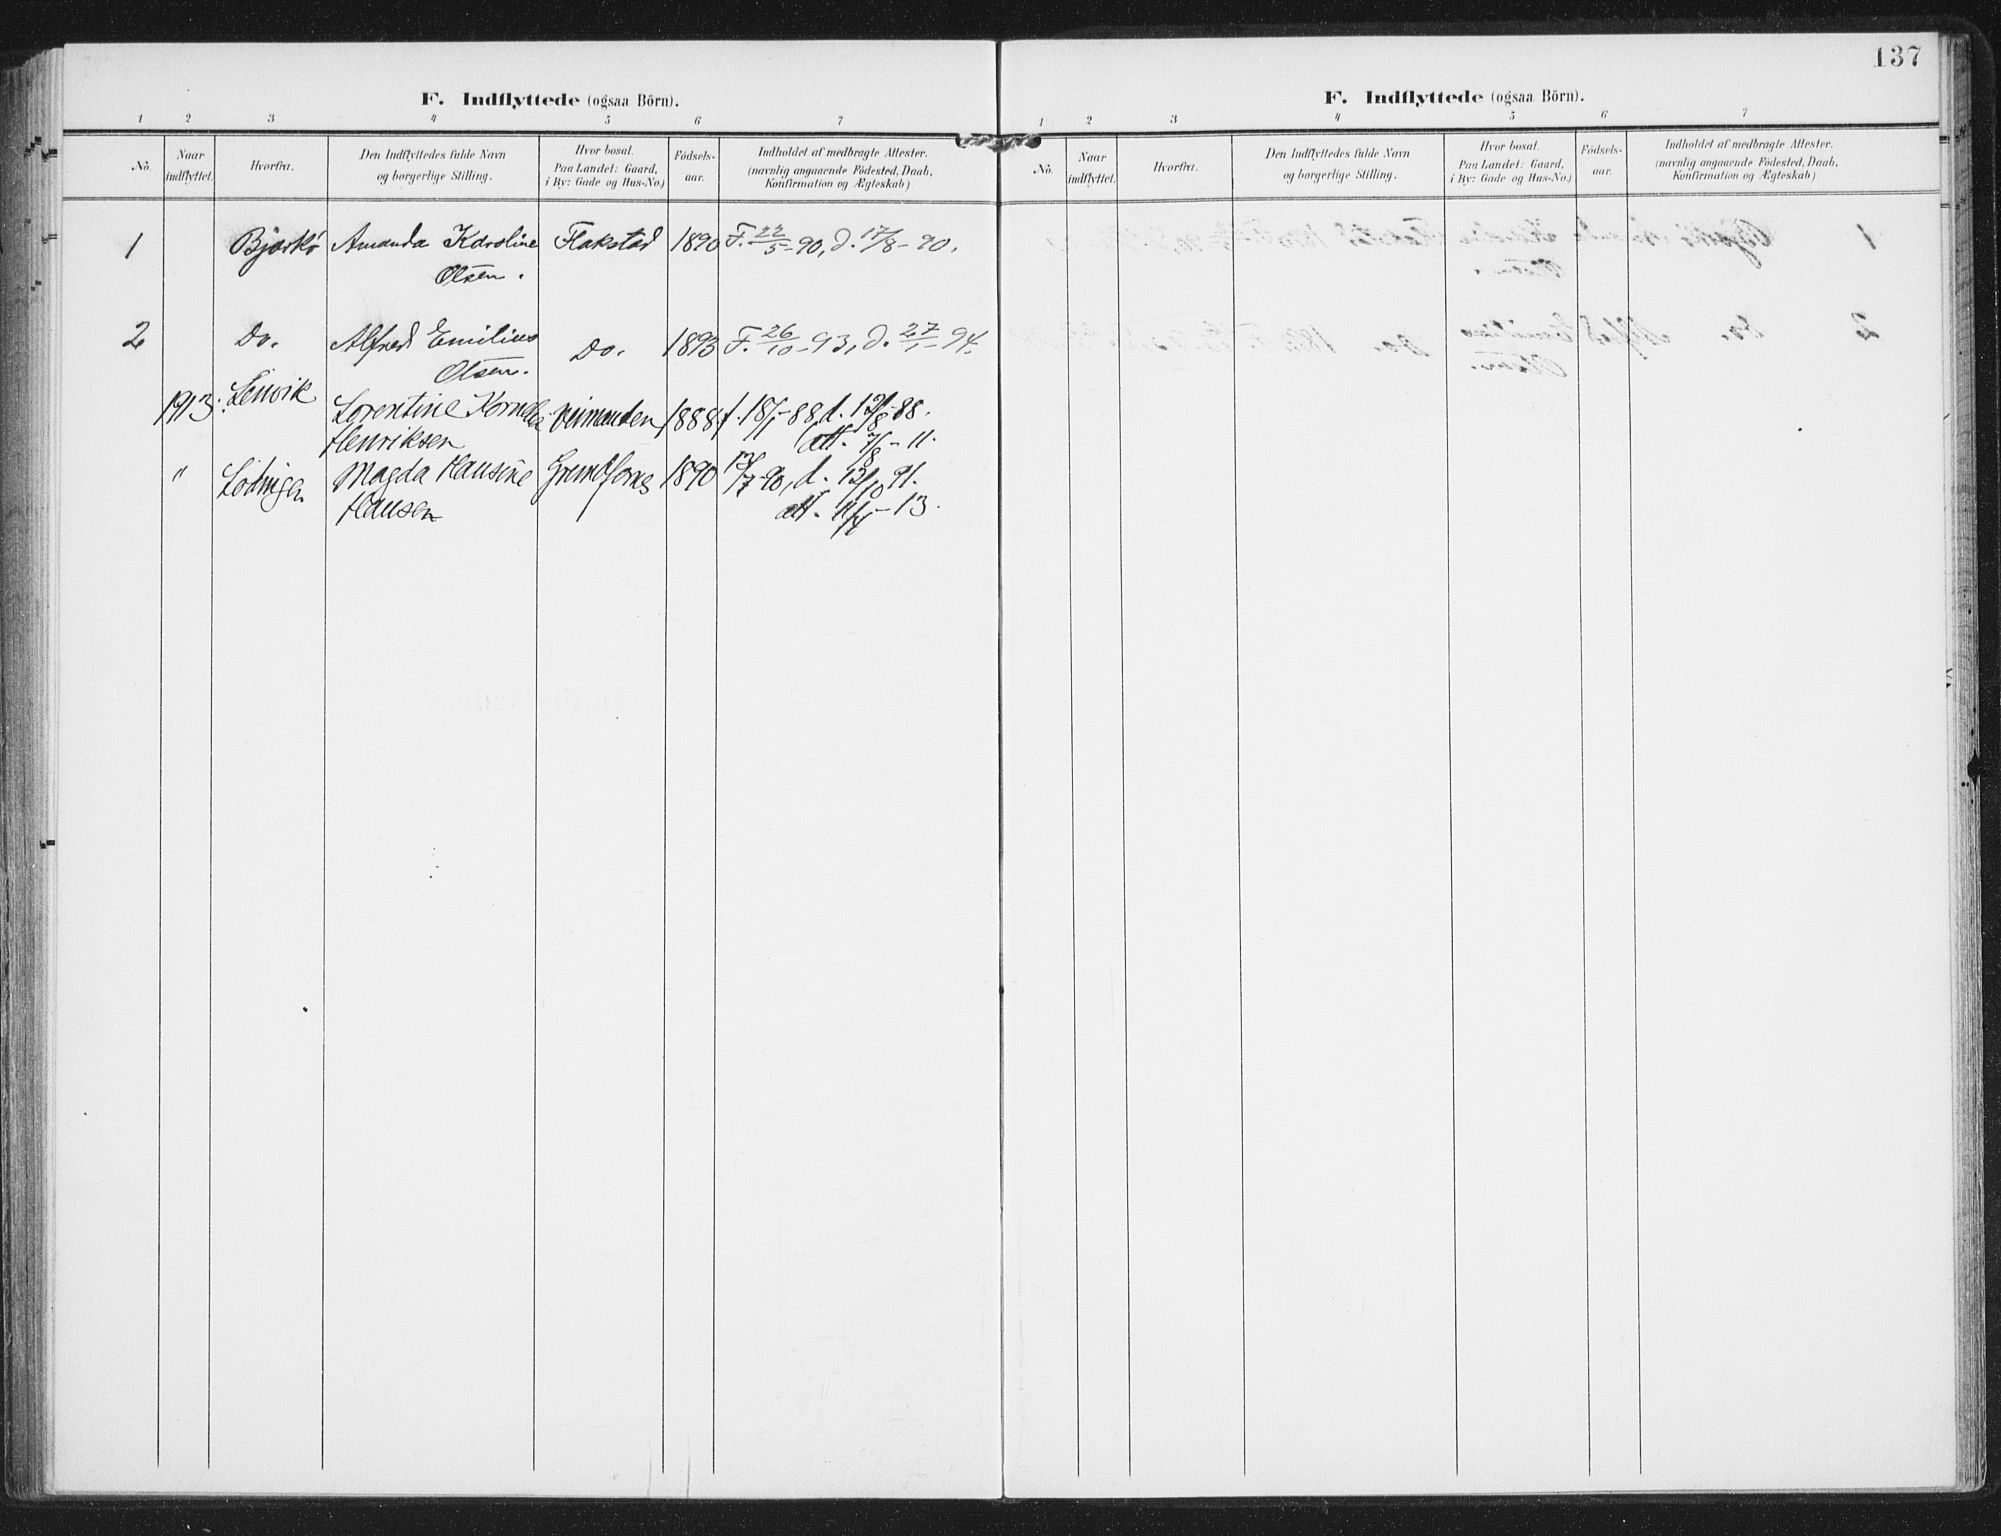 137
F. Indflyttede (ogsaa Börn).
1 2 3 4 5 6 7
No.
Naar indflyttet.
Hvorfra.
Den Indflyttedes fulde Navn
og borgerlige Stilling.
Hvor bosat.
Paa Landet: Gaard,
i By: Gade og Hus-No.)
Födsels-
aar.
Indholdet af medbragte Attester.
(navnlig angaaende Födested, Daab,
Konfirmation og Ægteskab)
1 Bjarkö Amanda Karoline Flakstad 1890 F. 22/5-90, d. 17/8-90.
Olsen.
2 Do. Alfred Emilius Do. 1893 F. 26/10-93, d. 27/1-94.
Olsen.
1913. Lenvik Lorentine Kornelia 1888 f. 18/1-88 d. 12/8-88.
Henriksen att. 7/8-11.
" Lödingen Magda Hansine 1890 12/7-90, d. 12/10 91.
Hansen att. 11/4-13.
F. Indflyttede (ogsaa Börn).
1 2 3 4 5 6 7
No.
Naar
indflyttet.
Hvorfra.
Den Indflyttedes fulde Navn
og borgerlige Stilling.
Hvor bosat.
Paa Landet: Gaard,
i By: Gade og Hus-No.)
Födsels-
aar.
Indholdet af medbragte Attester.
(navnlig angaaende Födested, Daab,
Konfirmation og Ægteskab)